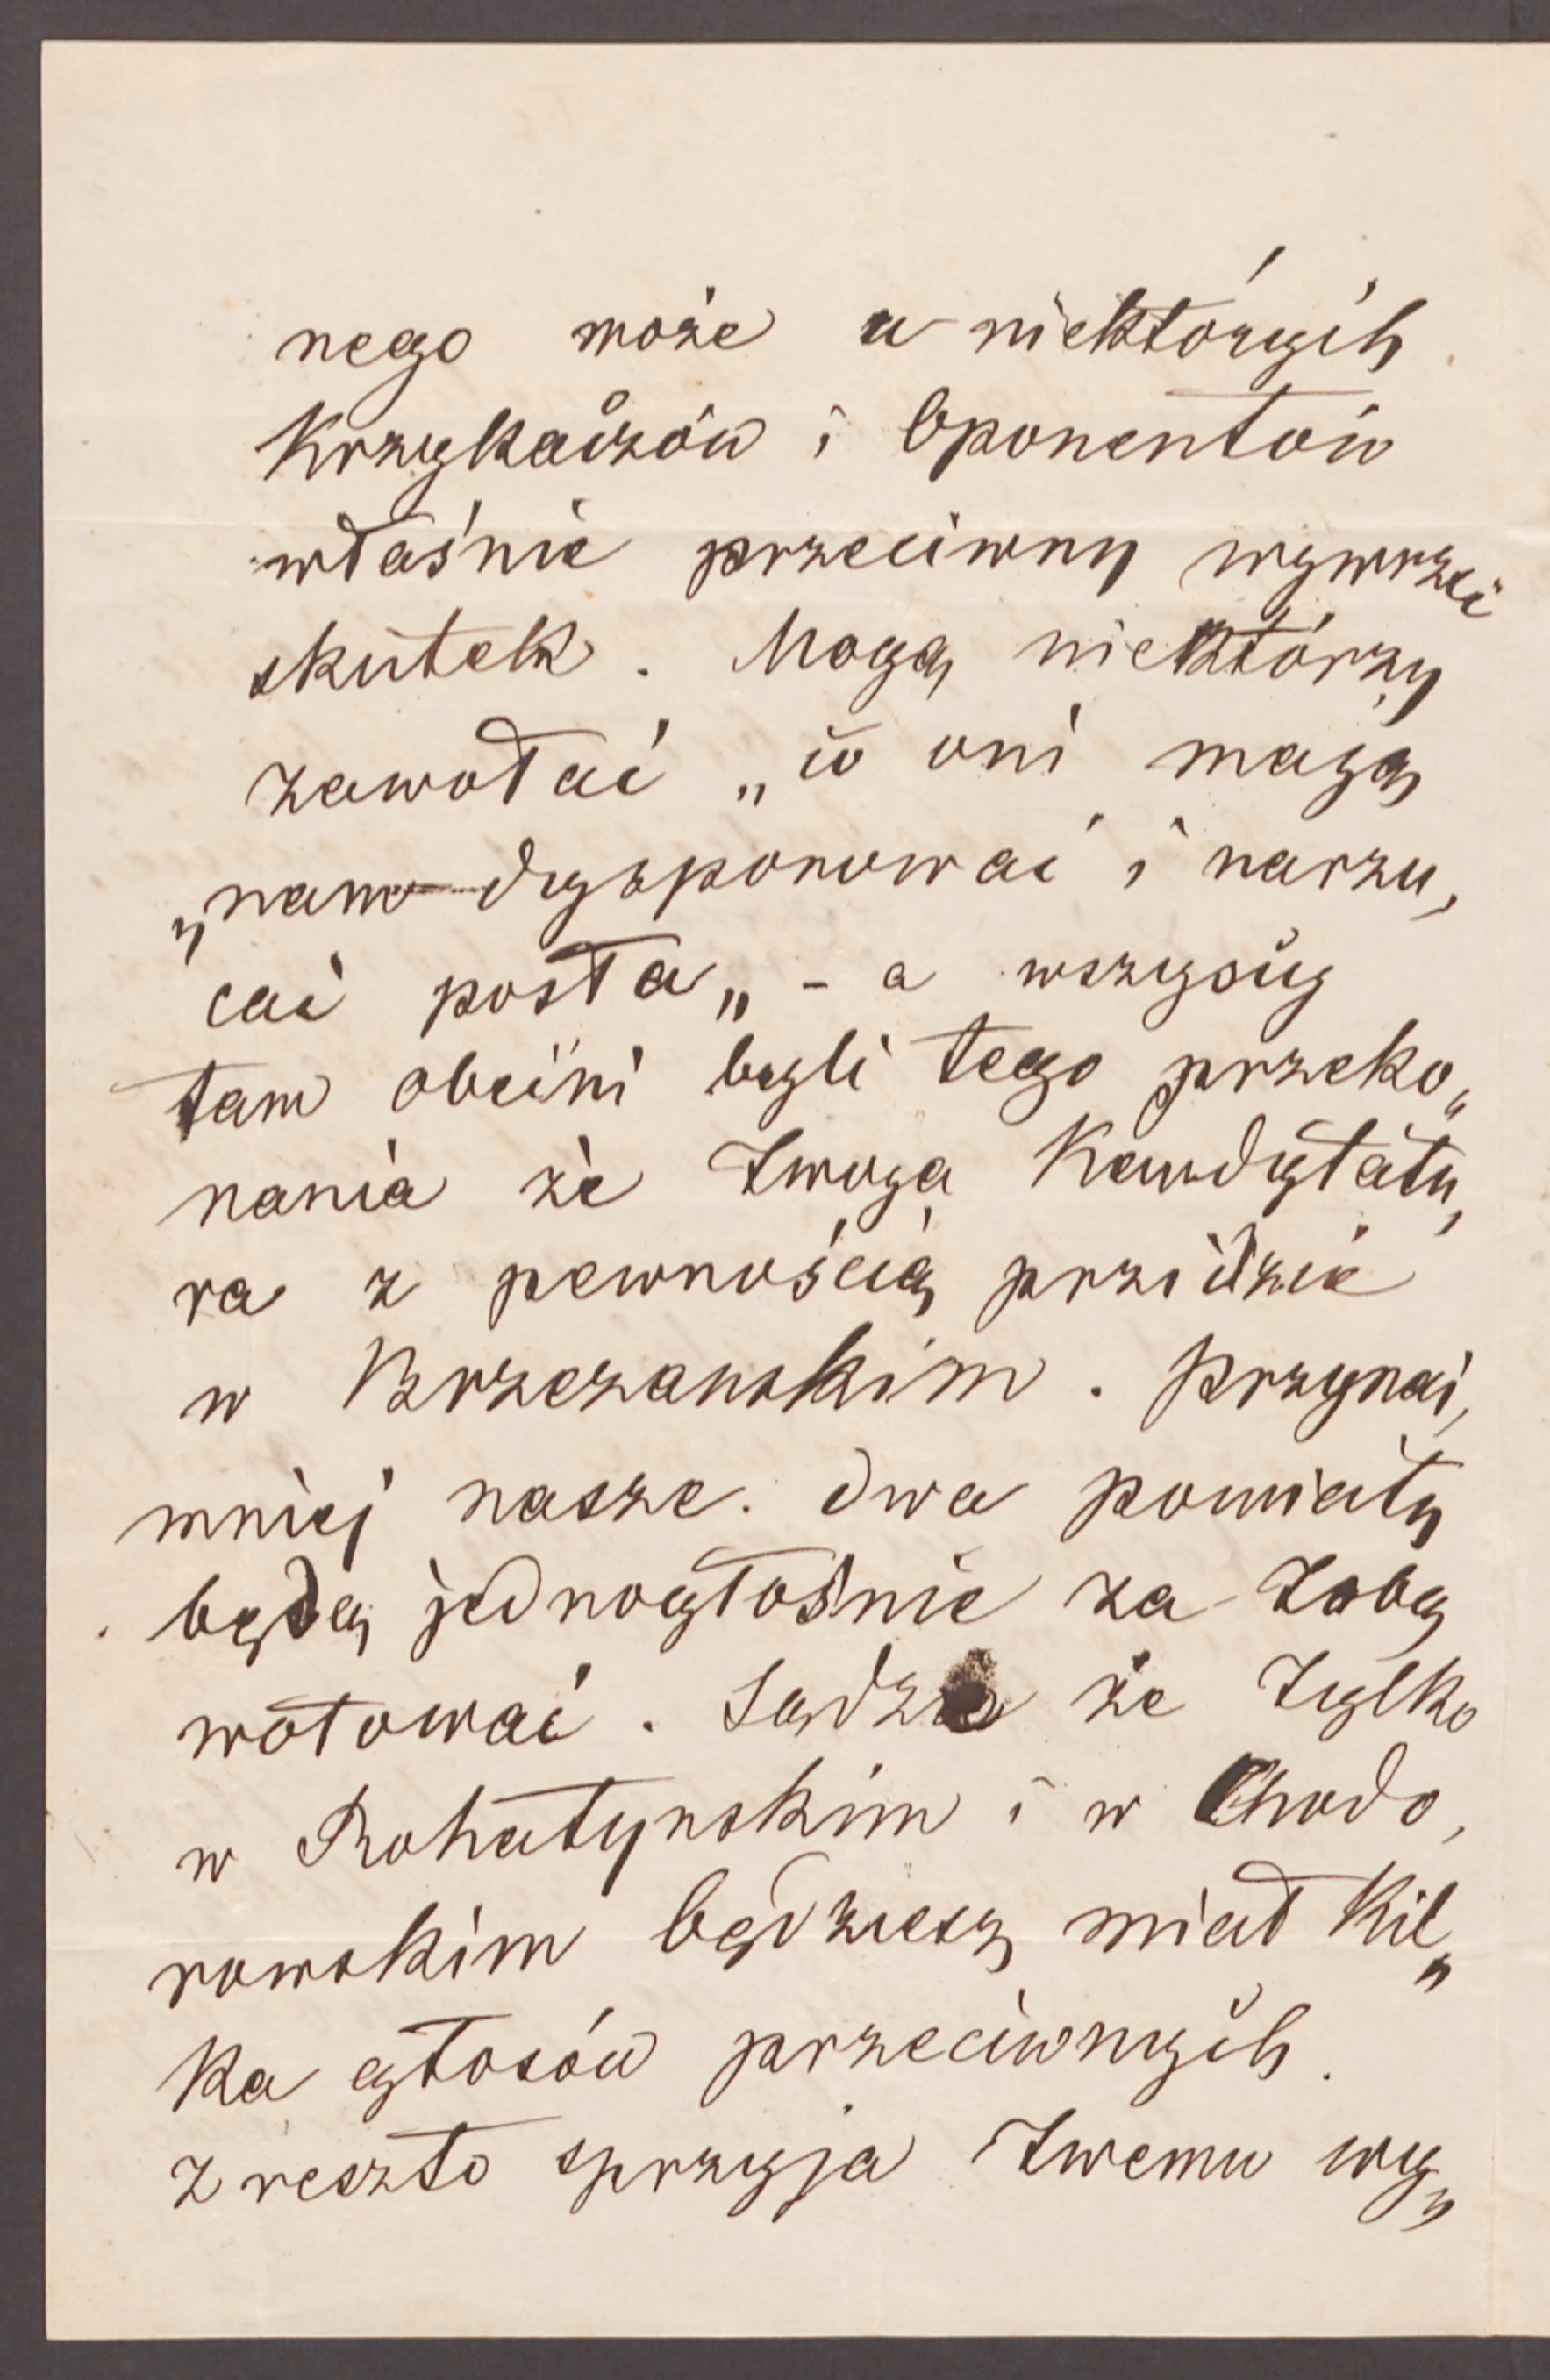 nego może u niektórych
Krzykaczów i Oponentów
właśnie przeciwny wywrzeć
skutek. Mogą niektórzy
zawołać „co oni mają
„nam dysponować i narzu,
cać posła„ - a wszyscy
tam obecni byli tego przeko„
nania że Twoja Kandytatu,
ra z pewnością przidzie
w Brzezanskim. Przynaj,
mniej nasze dwa powiaty
będą jednogłośnie za Tobą
wotować. Sądzę że Tylko
w Rohatynskim i w Chodo,
rowskim będziesz miał Kil„
Ka głosów przeciwnych.
Zreszto sprzyja Twemu wy„